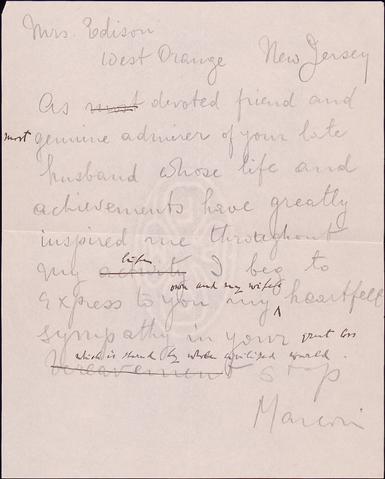 Mrs. Edison
West Orange New Jersey
As most devoted friend and
most genuine admirer of your late
husband whose life and
achievements have greatly
inspired me throughout
life
my activity I beg to
own and my wife's
express to you my heartfelt
sympathy in your great loss
which is shared by whole civilized world.
bereavement stop
Marconi